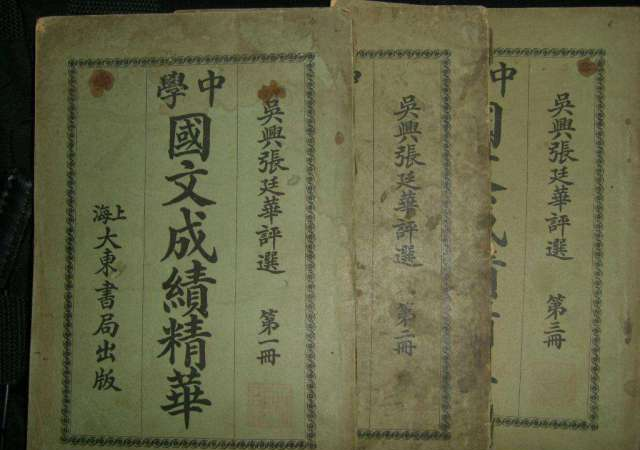 吳興張廷華評選 第一冊
中學
國文成績精華
上海大東書局出版
吳興張廷華評選 第二冊
中
吳興張廷華評選 第三冊
中